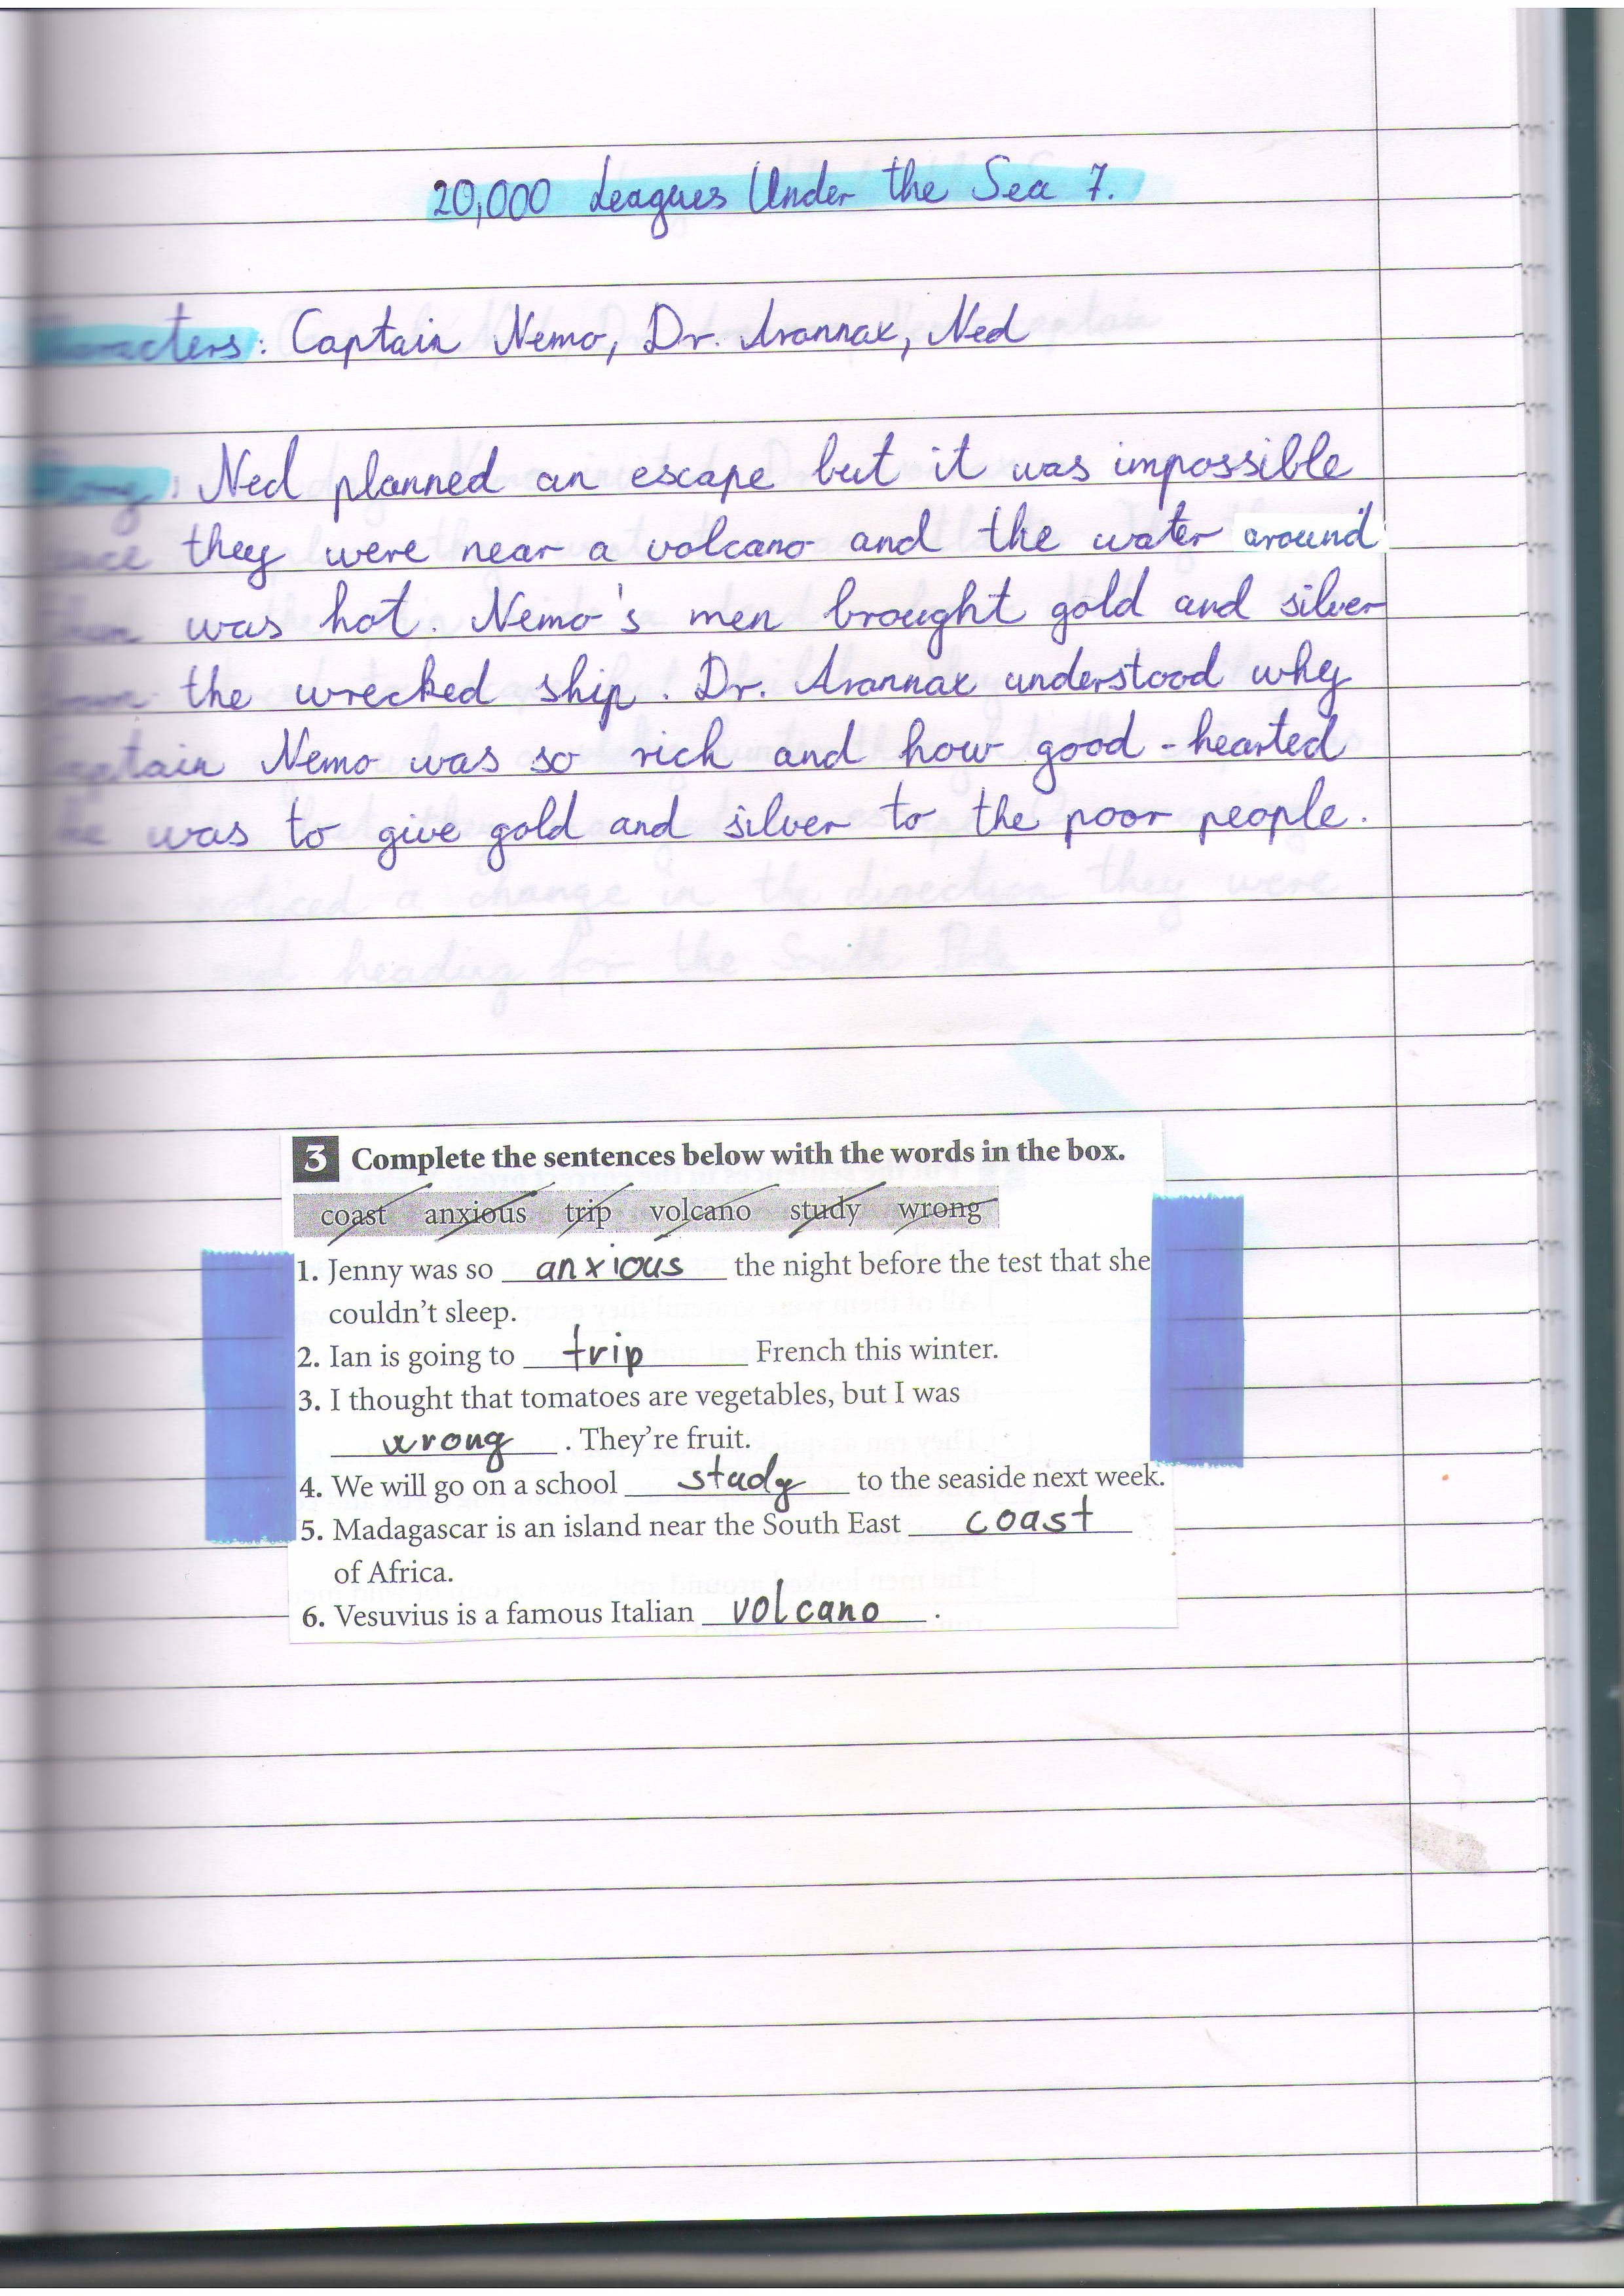 20,000 Leagues Under the Sea 7.
Characters: Captain Nemo, Dr. Arannax, Ned
Story: Ned planned an escape but it was impossible
since they were near a volcano and the water around
them was hot. Nemo's men brought gold and silver
from the wrecked ship. Dr. Arannax understood why
Captain Nemo was so rich and how good-hearted
he was to give gold and silver to the poor people.
3 Complete the sentences below with the words in the box.
coast anxious trip volcano study wrong
1. Jenny was so anxious the night before the test that she
couldn't sleep.
2. Ian is going to trip French this winter.
3. I thought that tomatoes are vegetables, but I was
wrong. They're fruit.
4. We will go on a school study to the seaside next week.
5. Madagascar is an island near the South East coast
of Africa.
6. Vesuvius is a famous Italian volcano.